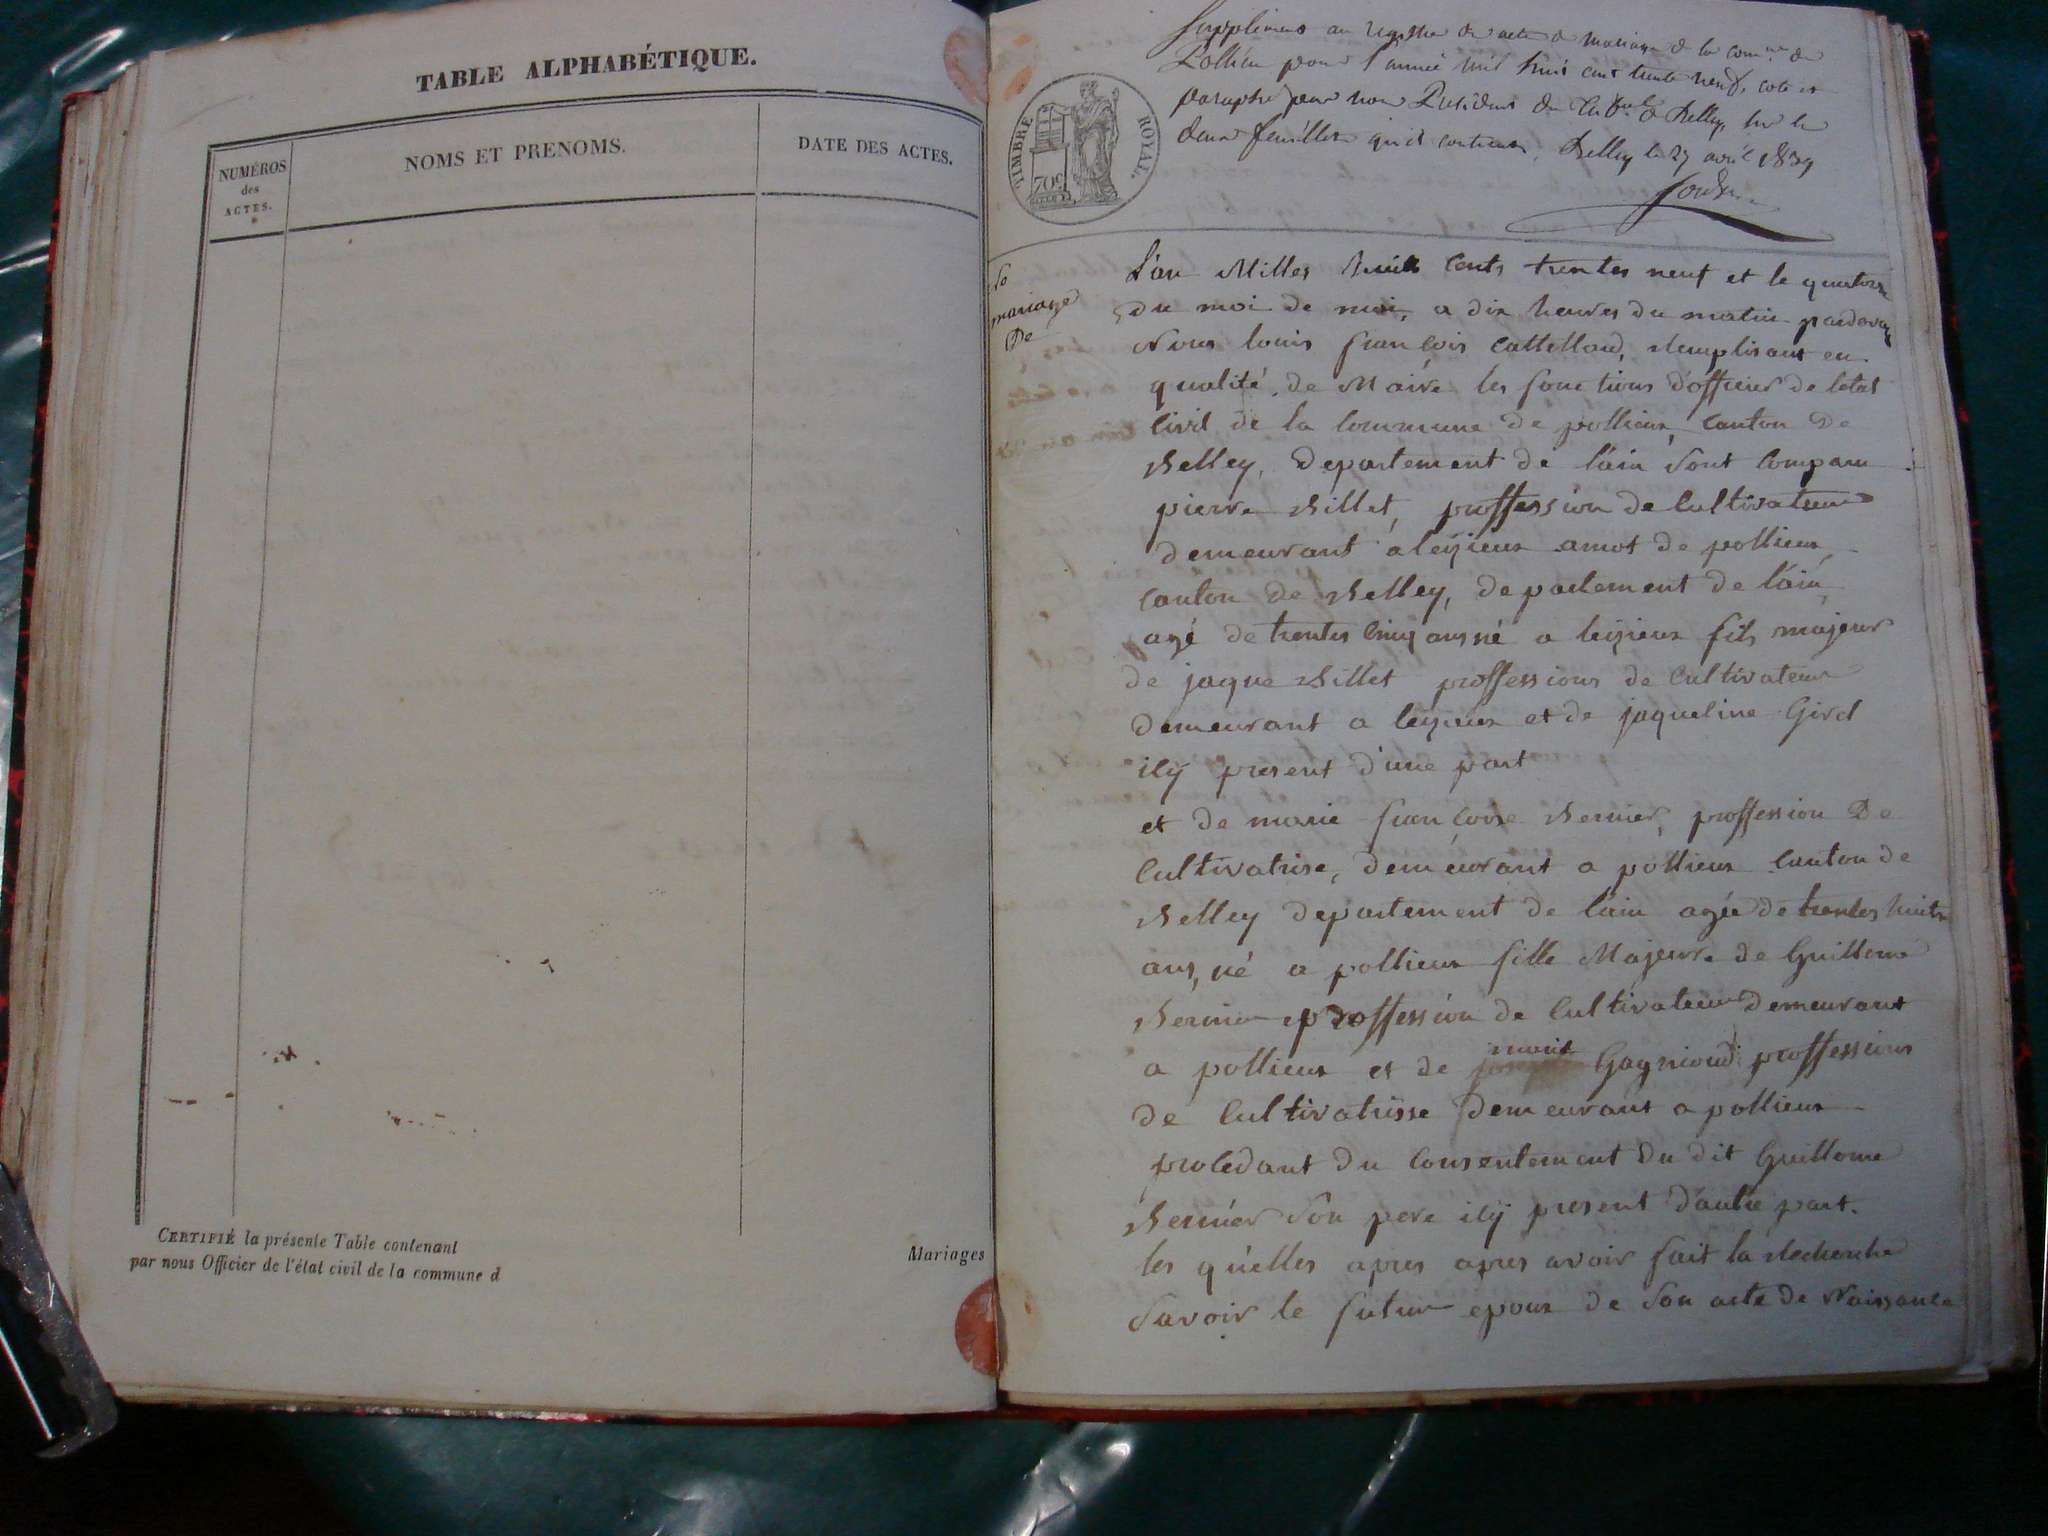 TABLE ALPHABÉTIQUE.
NUMÉROS
des
ACTES.
NOMS ET PRENOMS.
DATE DES ACTES.
CERTIFIÉ la présente Table contenant
par nous Officier de l'état civil de la commune d
Mariages
Supplément au registre des actes de mariage de la com.ne de
Pollieu pour l'année mil huit cent trente neuf, coté et
paraphé par nous Président du trib.al de Belley, sur les
deux feuilles qu'il contient, Belley le 27 avril 1839
TIMBRE ROYAL.
70c
mariage
De
L'an Milles huit Cents trentes neuf et le quatorze
du moi de mai, a dix heures du matin pardevant
Nous louis françois Cattelland, Remplisant en
qualité de Maire les fonctions d'officier de letat
Civil de la Commune de pollieux, Canton de
Belley, departement de l'ain Sont Comparu
pierre Billet, proffession de Cultivateur
demeurant a leyieux amot de pollieux
Canton de Belley, departement de l'ain
agé de trentes Cinq ans né a leyieux fils majeur
de jaque Billet proffessions de Cultivateur
demeurant a leyieux et de jaqueline Girel
icy present d'une part
et de marie françoise Bernier, proffession De
Cultivatrise, demeurant a pollieux Canton de
Belley departement de l'ain agée de trentes huits
ans, né a pollieux fille Majeure de Guillome
Bernier proffession de Cultivateur demeurant
a pollieux et de marie Gagnioud proffessions
de Cultivatrisse demeurant a pollieux
procedant du Consentement du dit Guillome
Bernier Son pere icy present d'autre part.
les quelles apres apres avoir fait la Recherche
Savoir le futur epoux de Son acte de Naissance